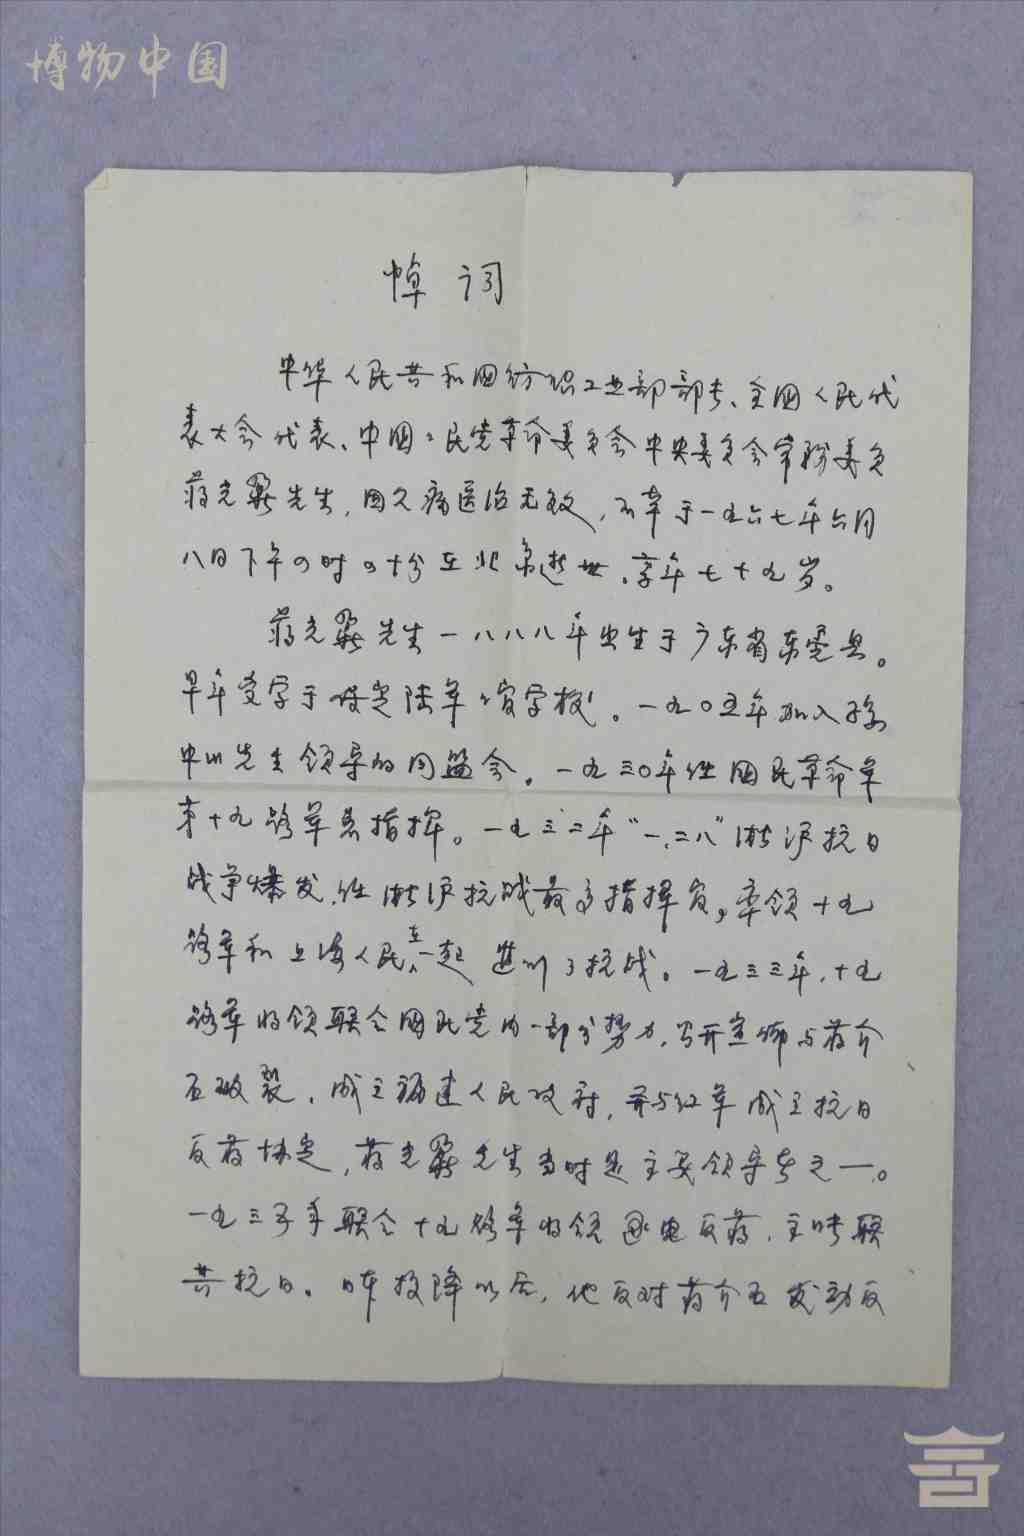 博物中国
悼词
中华人民共和国纺织工业部部长、全国人民代
表大会代表、中国国民党革命委员会中央委员会常务委员
蒋光鼐先生，因久病医治无效，不幸于一九六七年六月
八日下午四时四十分在北京逝世，享年七十九岁。
蒋光鼐先生一八八八年出生于广东省东莞县。
早年受学于保定陆军军官学校。一九〇五年加入孙
中山先生领导的同盟会。一九三〇年任国民革命军
第十九路军总指挥。一九三二年“一.二八”淞沪抗日
战争爆发，任淞沪抗战最高指挥官，率领十九
路军和上海人民在一起进行了抗战。一九三三年，十九
路军将领联合国民党内一部分势力，公开宣佈与蒋介
石破裂，成立福建人民政府，并与红军成立抗日
反蒋协定，蒋光鼐先生当时是主要领导者之一。
一九三五年联合十九路军将领通电反蒋，主张联
共抗日。日本投降以后，他反对蒋介石发动反